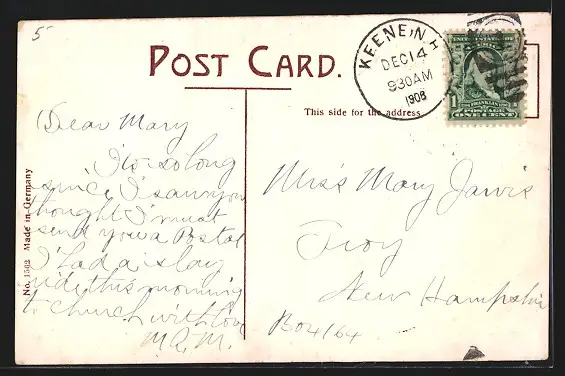 5
POST CARD.
This side for the address
KEENE, N.H.
DEC 14
930 AM
1908
1 FRANKLIN 1
POSTAGE
ONE CENT
No. 1562 Made in Germany
Dear Mary
Its so long
since I saw you
thought I must
send you a Postal
I had a slay
ride this morning
to church with love
M.A.M.
Miss Mary Jarvis
Troy
New Hampshire
Box 164